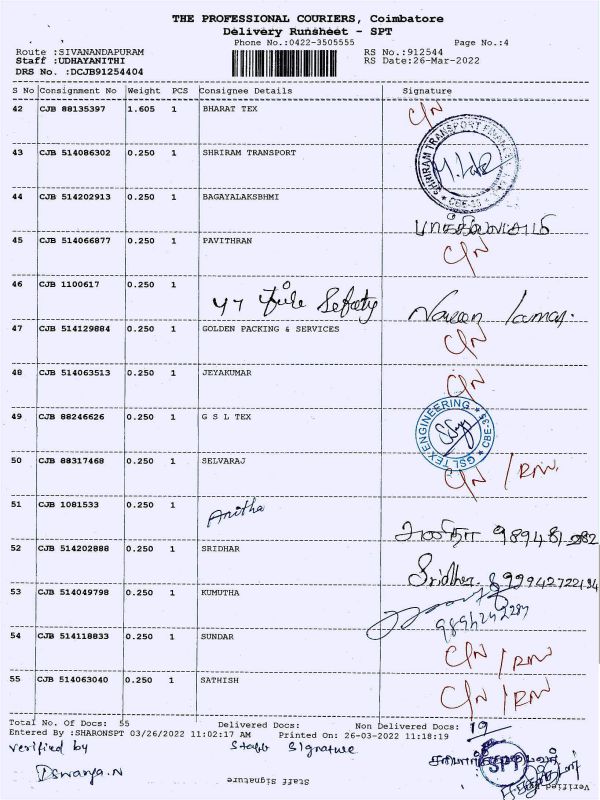 THE PROFESSIONAL COURIERS, Coimbatore
Delivery Runsheet - SPT
Phone No.:0422-3505555 Page No.:4
Route :SIVANANDAPURAM RS No.:912544
Staff :UDHAYANITHI RS Date:26-Mar-2022
DRS No. :DCJB91254404
S No Consignment No Weight PCS Consignee Details Signature
42 CJB 88135397 1.605 1 BHARAT TEX C/N
43 CJB 514086302 0.250 1 SHRIRAM TRANSPORT
SHRIRAM TRANSPORT FINANCE
CBE-35
44 CJB 514202913 0.250 1 BAGAYALAKSBHMI
45 CJB 514066877 0.250 1 PAVITHRAN C/N
46 CJB 1100617 0.250 1
47 CJB 514129884 0.250 1 GOLDEN PACKING & SERVICES C/N
48 CJB 514063513 0.250 1 JEYAKUMAR C/N
49 CJB 88246626 0.250 1 G S L TEX
GSL TEX ENGINEERING
CBE-35
50 CJB 88317468 0.250 1 SELVARAJ C/N / RN
51 CJB 1081533 0.250 1 Anitha
52 CJB 514202888 0.250 1 SRIDHAR Sridhar
53 CJB 514049798 0.250 1 KUMUTHA
54 CJB 514118833 0.250 1 SUNDAR C/N / RN
55 CJB 514063040 0.250 1 SATHISH C/N / RN
Total No. Of Docs: 55 Delivered Docs: Non Delivered Docs: 19
Entered By :SHARONSPT 03/26/2022 11:02:17 AM Printed On: 26-03-2022 11:18:19
verified by Staff Signature
SPT
Staff Signature Verified By